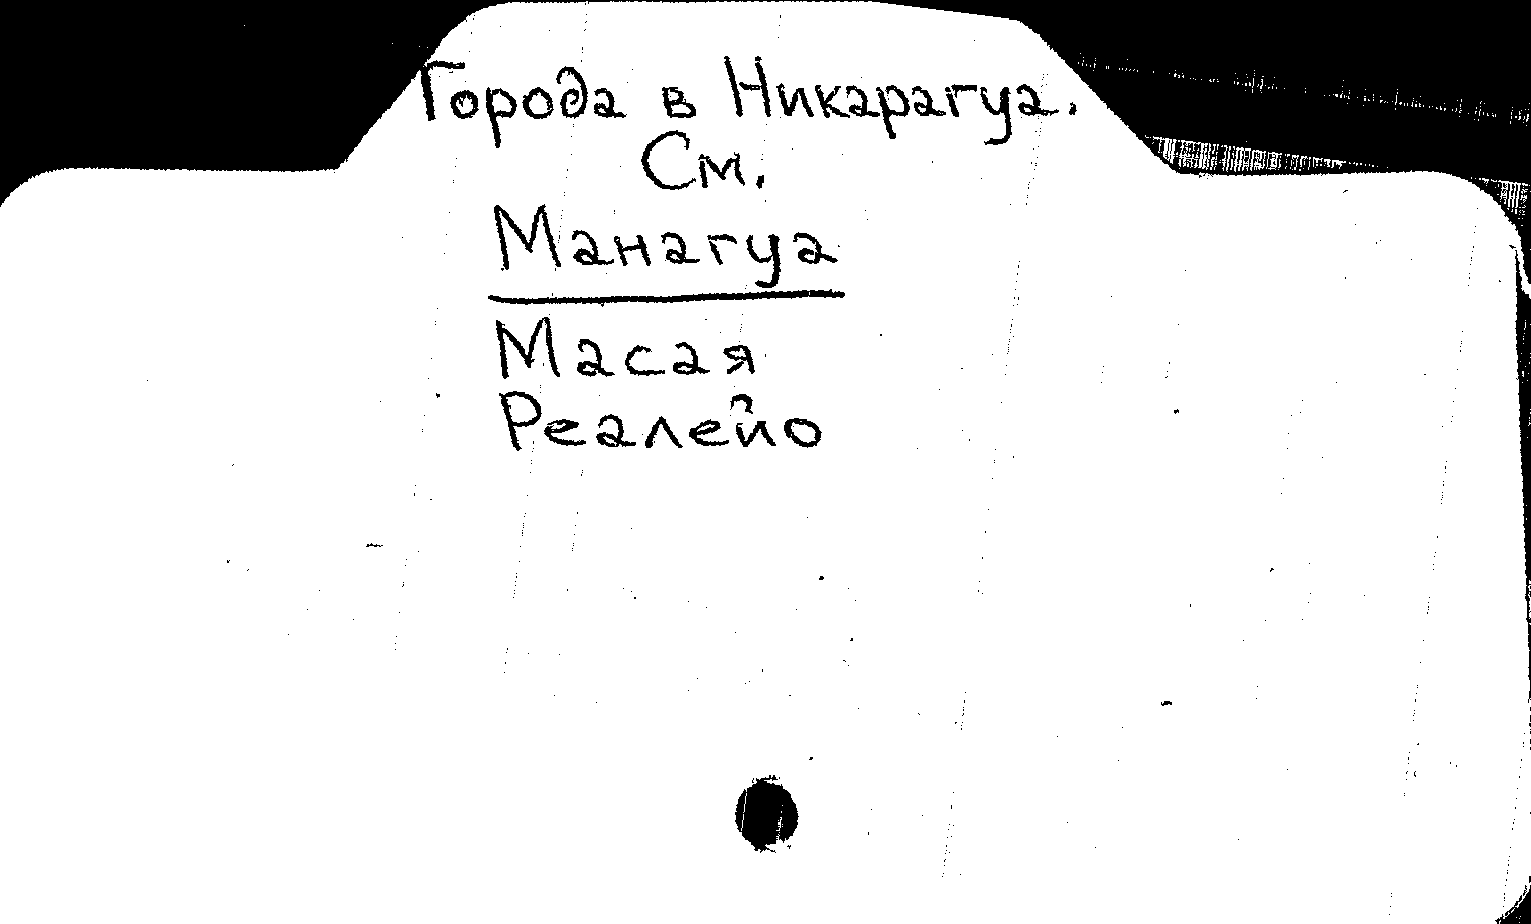 Города в Никарагуа.
См.
Манагуа
Масая
Реалейо